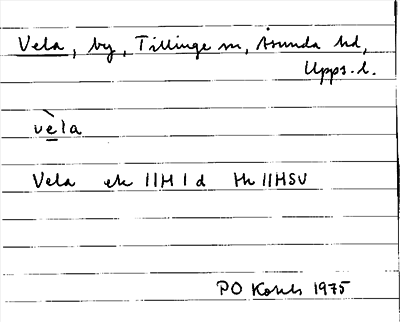 Vela, by, Tillinge sn, Åsunda hd,
Upps. l.
vèla
Vela ek 11H 1 d Hk 11HSV
PO 1975